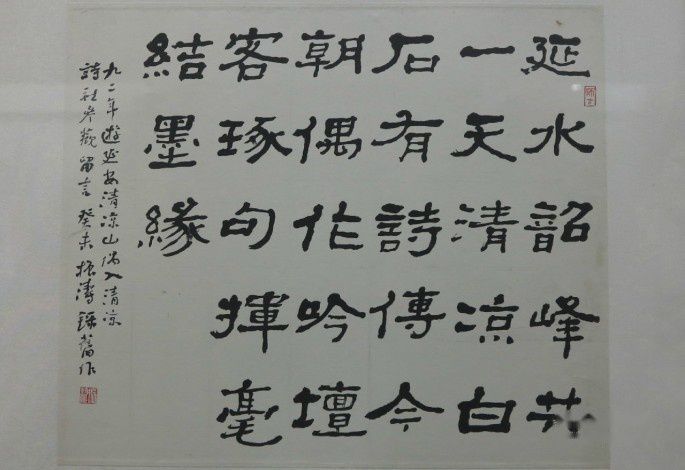 延水韶峰共
一天清凉白
石有詩傳今
朝偶作吟壇
客琢句揮毫
結墨緣
九二年遊延安清凉山偶入清凉
詩社參觀留言 癸未 振濤錄舊作